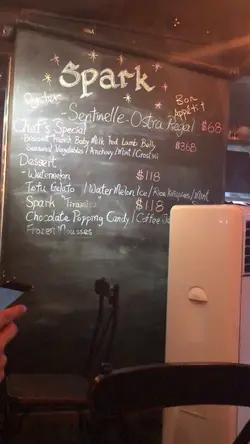 Spark
Oyster
Bon Appétit
Sentinelle - Ostra Regal $68
Chef's Special
- Braised French Baby Milk Fed Lamb Belly
Seasonal Vegetables / Anchovy / Mint / Crostini $368
Dessert
- Watermelon $118
Tofu Gelato / Water Melon Ice / Rice Krispies / Mint
Spark "Tiramisu" $118
Chocolate Popping Candy / Coffee
Frozen Mousses